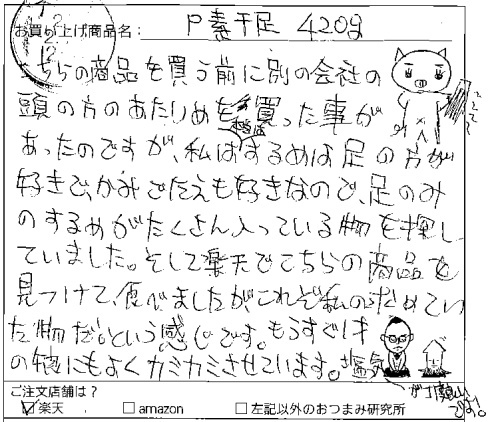 お買い上げ商品名： P素干足 420g
こちらの商品を買う前に別の会社の
頭の方のあたりめを買った事が
あったのですが、私はするめは足の方が
好きで、かみごたえも好きなので、足のみ
のするめがたくさん入っている物を探し
ていました。そして楽天でこちらの商品を
見つけて、食べましたが、これぞ私の求めてい
た物だ。という感じです。もうすぐ1才
の娘にもよくカミカミさせています。塩気
が
ご注文店舗は？
楽天 amazon 左記以外のおつまみ研究所